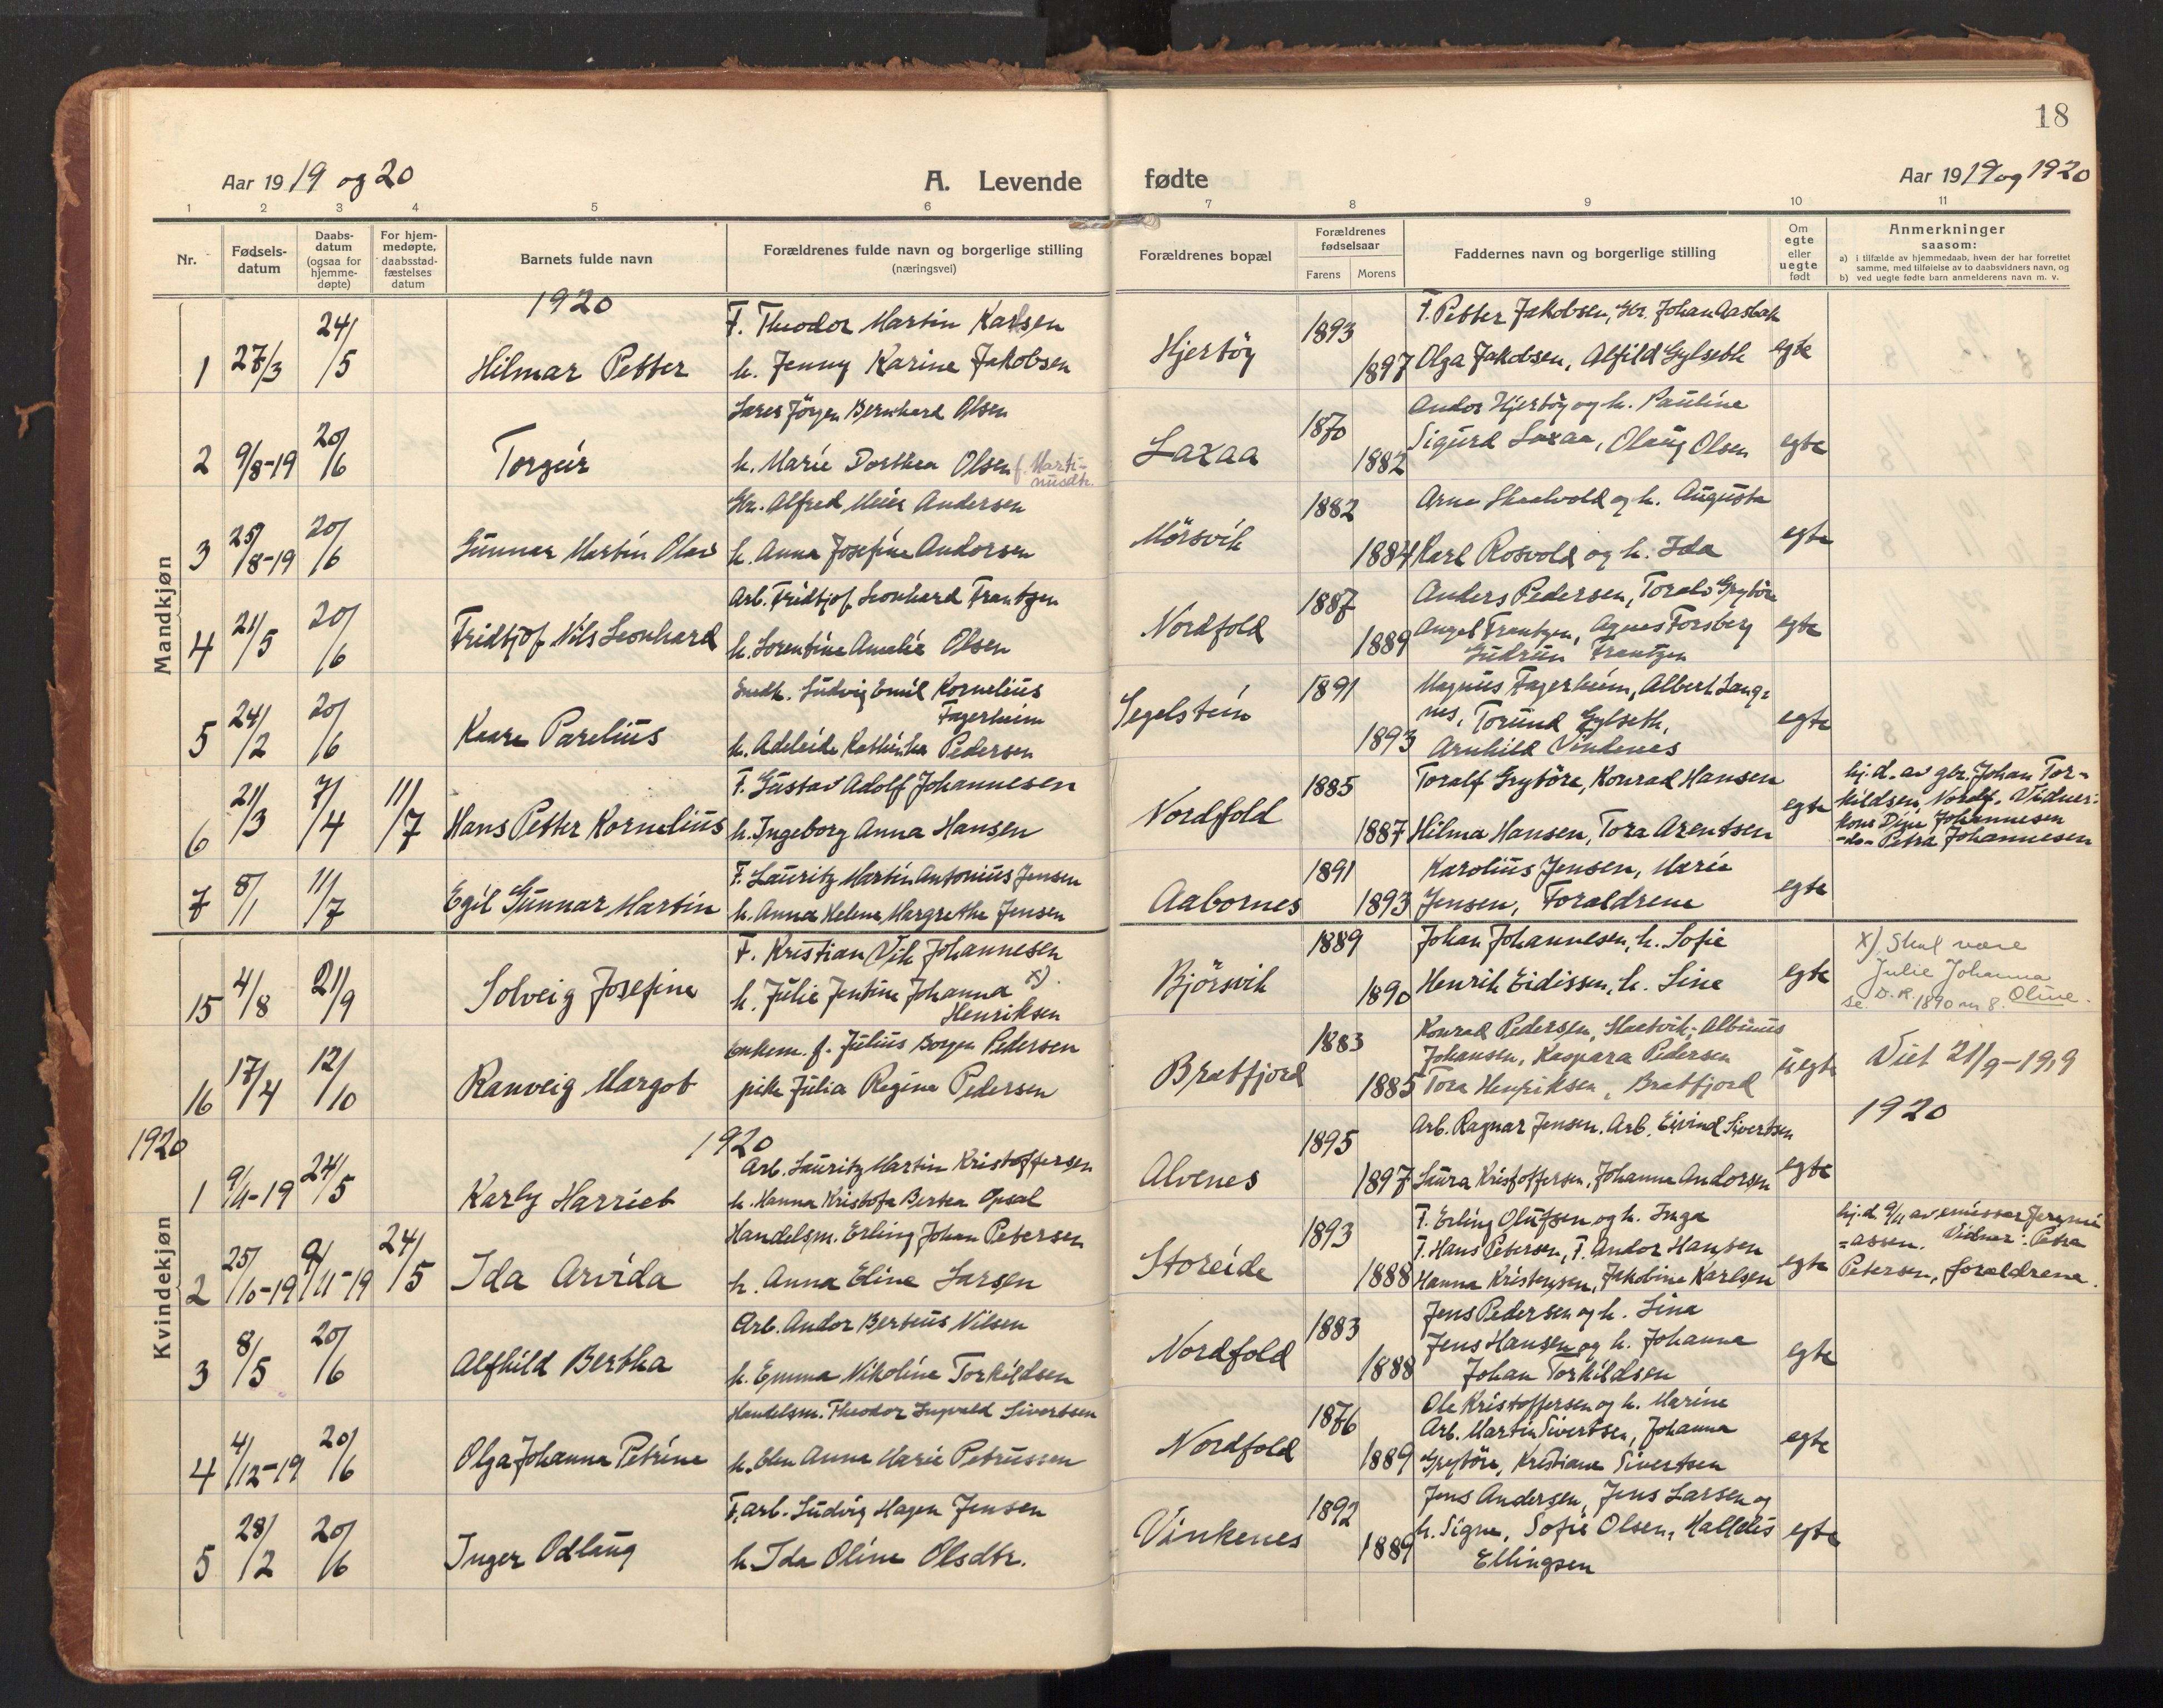 18
Aar 1919 og 20 A. Levende fødte Aar 1919 og 1920
1 2 3 4 5 6 7 8 9 10 11
Nr.
Fødsels-
datum
Daabs-
datum
(ogsaa for
hjemme-
døpte)
For hjem-
medøpte,
daabsstad-
fæstelses
datum
Barnets fulde navn
Forældrenes fulde navn og borgerlige stilling
(næringsvei)
Forældrenes bopæl
Forældrenes
fødselsaar
Farens Morens
Faddernes navn og borgerlige stilling
Om
egte
eller
uegte
født
Anmerkninger
saasom:
a) i tilfælde av hjemmedaab, hvem der har forrettet
samme, med tilføielse av to daabsvidners navn, og
b) ved uegte fødte barn anmelderens navn m. v.
Mandkjøn
1920
1 27/3 24/5 Hilmar Petter
F. Theodor Martin Karlsen
h. Jenny Karine Jakobsen
Hjertöy 1893 1897
F. Petter Jakobsen, Gbr. Johan Aasbak
Olga Jakobsen, Alfild Gylseth
egte
2 9/8-19 20/6 Torgeir
Lærer Jörgen Bernhard Olsen
h. Marie Dorthea Olsen f. Marti-
nusdtr.
Laxaa 1870 1882
Andor Hjertöy og h. Pauline
Sigurd Laxaa, Olaug Olsen
egte
3 25/8-19 20/6 Gunnar Martin Olav
Gbr. Alfred Meier Andersen
h. Anna Josefine Andorsen
Mörsvik 1882 1884
Arne Skaalvold og h. Augusta
Karl Rosvold og h. Ida
egte
4 21/5 20/6 Fridtjof Nils Leonhard
Arb. Fridtjof Leonhard Frantzen
h. Lorentine Amalie Olsen
Nordfold 1887 1889
Anders Pedersen, Toralv Grytöra
Angel Frantzen, Agnes Forsberg
Gudrun Frantzen
egte
5 24/2 20/6 Kaare Parelius
Snedk. Ludvig Emil Kornelius
Fagerheim
h. Adeleide Kathinka Pedersen
Segelstein 1891 1893
Magnus Fagerheim, Albert Lang-
nes, Torund Gylseth,
Arnhild Vindenes
egte
6 21/3 7/4 11/7 Hans Petter Kornelius
F. Gustav Adolf Johannesen
h. Ingeborg Anna Hansen
Nordfold 1885 1887
Toralf Grytöra, Konrad Hansen
Hilma Hansen, Tora Arentsen
egte
hj. d. av gbr. Johan Tor-
kildsen, Nordf. Vidner:
kone Dina Johannesen
-do- Petra Johannesen
7 8/1 11/7 Egil Gunnar Martin
F. Lauritz Martin Antonius Jensen
h. Anna Helene Margrethe Jensen
Aabornes 1891 1893
Karolius Jensen, Marie
Jensen, Foraldrene
egte
Kvindekjøn
15 4/8 21/9 Solveig Josefine
F. Kristian Vik Johannesen
h. Julie Jentine Johanna x)
Henriksen
Björsvik 1889 1890
Johan Johannesen, h. Sofie
Henrik Eidissen, h. Line
egte
x) Skal være
Julie Johanna
Oline.
se D.R. 1890 nr 8.
16 17/4 12/10 Ranveig Margot
Enkem. f. Julius Borgen Pedersen
pike Julia Regine Pedersen
Bratfjord 1883 1885
Konrad Pedersen, Maatvik, Albinus
Johansen, Kaspara Pedersen
Tora Henriksen, Bratfjord
uegte
Viet 21/9-1919
1920 1920 1920
1 9/4-19 24/5 Karly Harriet
Arb. Lauritz Martin Kristoffersen
h. Hanna Kristofa Bertea Opsal
Alvenes 1895 1897
Arb. Ragnar Jensen. Arb. Eivind Sivertsen
Laura Kristoffersen, Johanna Andorsen
egte
2 25/10-19 9/11-19 24/5 Ida Arvida
Handelsm. Erling Johan Petersen
h. Anna Eline Larsen
Storeide 1893 1888
F. Erling Olufsen og h. Inga
F. Hans Petersen, F. Andor Hansen
Hanna Kristensen, Jakobine Karlsen
egte
hj. d. 9/11 av emissær Jeremi
=assen. Vidner: Petra
Petersen, foreldrene.
3 8/5 20/6 Alfhild Bertha
Arb. Andor Berteus Nilsen
h. Emma Nikoline Torkildsen
Nordfold 1883 1888
Jens Pedersen og h. Lina
Jens Hansen og h. Johanna
Johan Torkildsen
egte
4 4/12-19 20/6 Olga Johanna Petrine
Handelsm. Theodor Ingvald Sivertsen
h. Elen Anna Marie Petrussen
Nordfold 1876 1889
Ole Kristoffersen og h. Marine
Arb. Martin Sivertsen, Johanna
Grytöra, Kristiane Sivertsen
egte
5 28/2 20/6 Inger Odlaug
F. arb. Ludvig Hagen Jensen
h. Ida Oline Olsdtr.
Vinkenes 1892 1889
Jens Andersen, Jens Larsen og
h. Signe, Sofie Olsen, Halldis
Ellingsen
egte